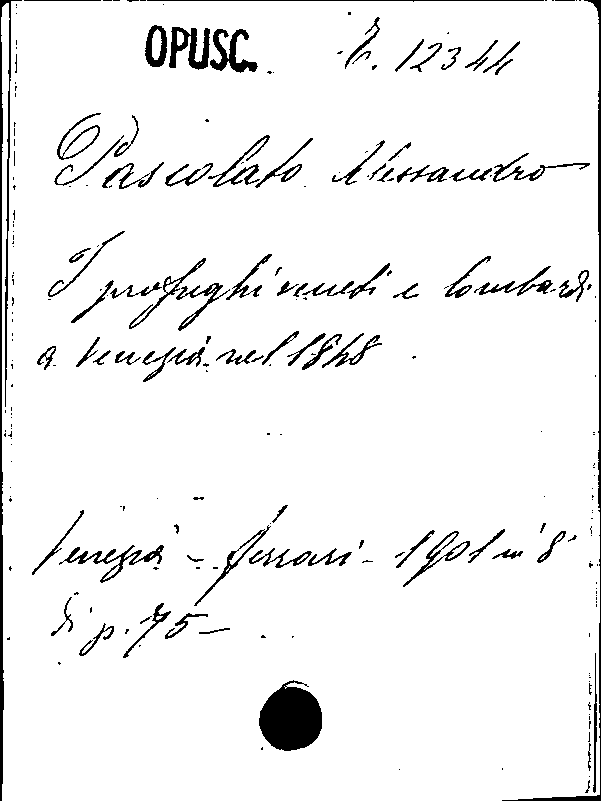 OPUSC. E. 12344
Pascolato Alessandro
I profughi veneti e lombardi
a Venezia nel 1848
Venezia - Ferrari - 1901 in 8°
di p. 75 -